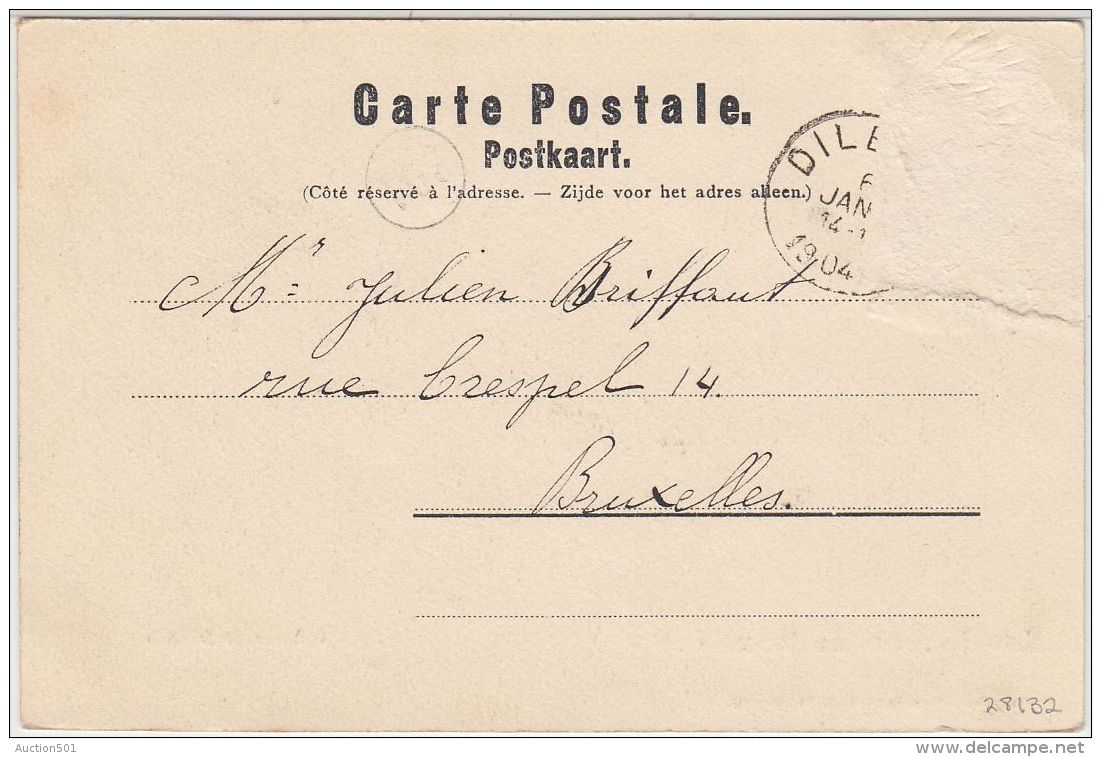 Carte Postale.
Postkaart.
(Côté réservé à l'adresse. — Zijde voor het adres alleen.)
DILB
6
JAN
14-1
1904
Mr Julien Briffaut
rue Crespel 14.
Bruxelles.
28132
Auction501
www.delcampe.net